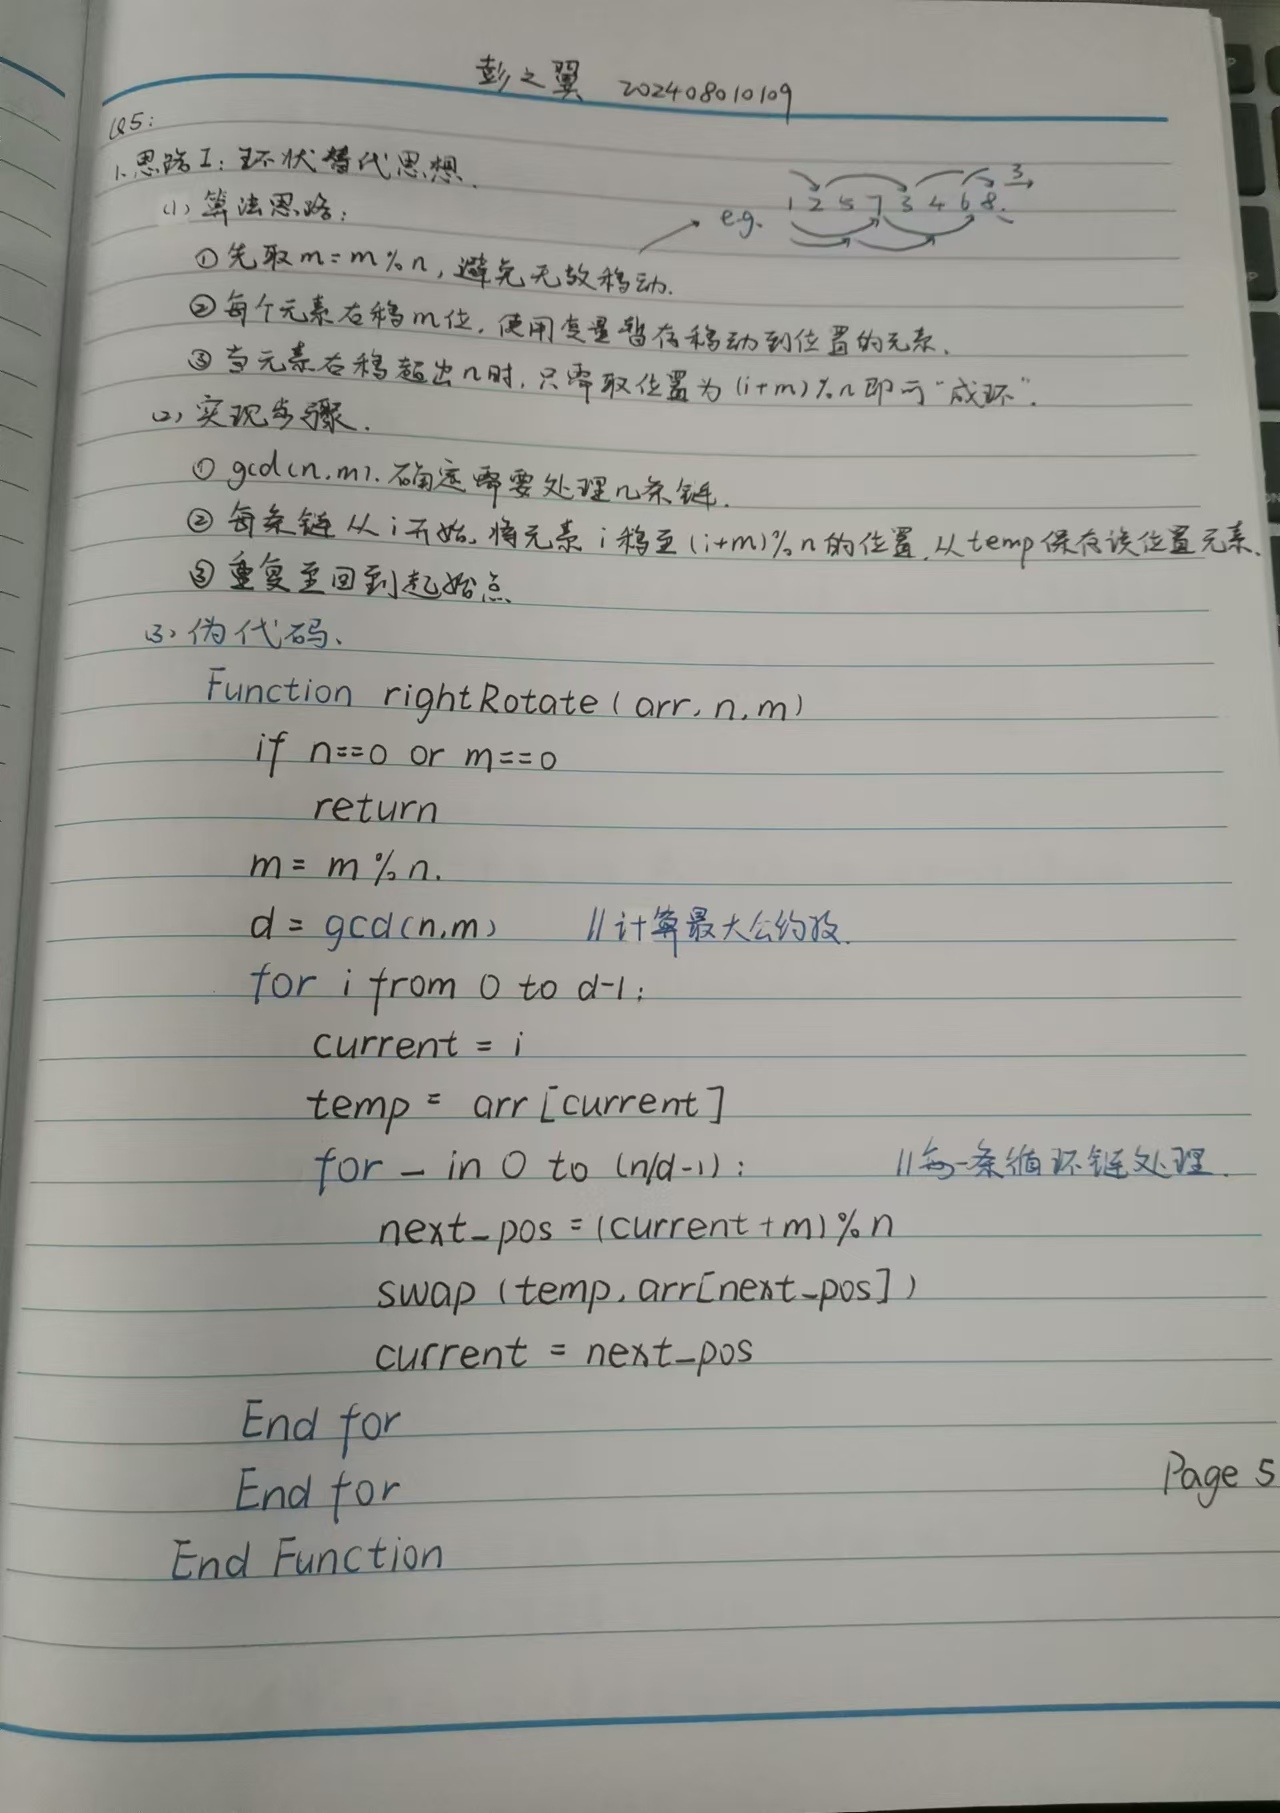 彭之翼 202408010109
Q5:
1. 思路I: 环状替代思想.
(1) 算法思路:
e.g. 1 2 5 7 3 4 6 8. 3
① 先取m=m%n, 避免无效移动.
② 每个元素右移m位, 使用变量暂存移动到位置的元素.
③ 当元素右移超出n时, 只需取位置为(i+m)%n即可"成环".
(2) 实现步骤.
① gcd(n,m). 确定需要处理几条链.
② 每条链从i开始, 将元素i移至(i+m)%n的位置, 以temp保存该位置元素.
③ 重复至回到起始点
(3) 伪代码、
Function rightRotate(arr, n, m)
if n==0 or m==0
return
m = m % n.
d = gcd(n,m) //计算最大公约数.
for i from 0 to d-1:
current = i
temp = arr[current]
for _ in 0 to (n/d-1): //每一条循环链处理.
next_pos = (current+m)%n
swap (temp, arr[next_pos])
current = next_pos
End for
End for
Page 5
End Function